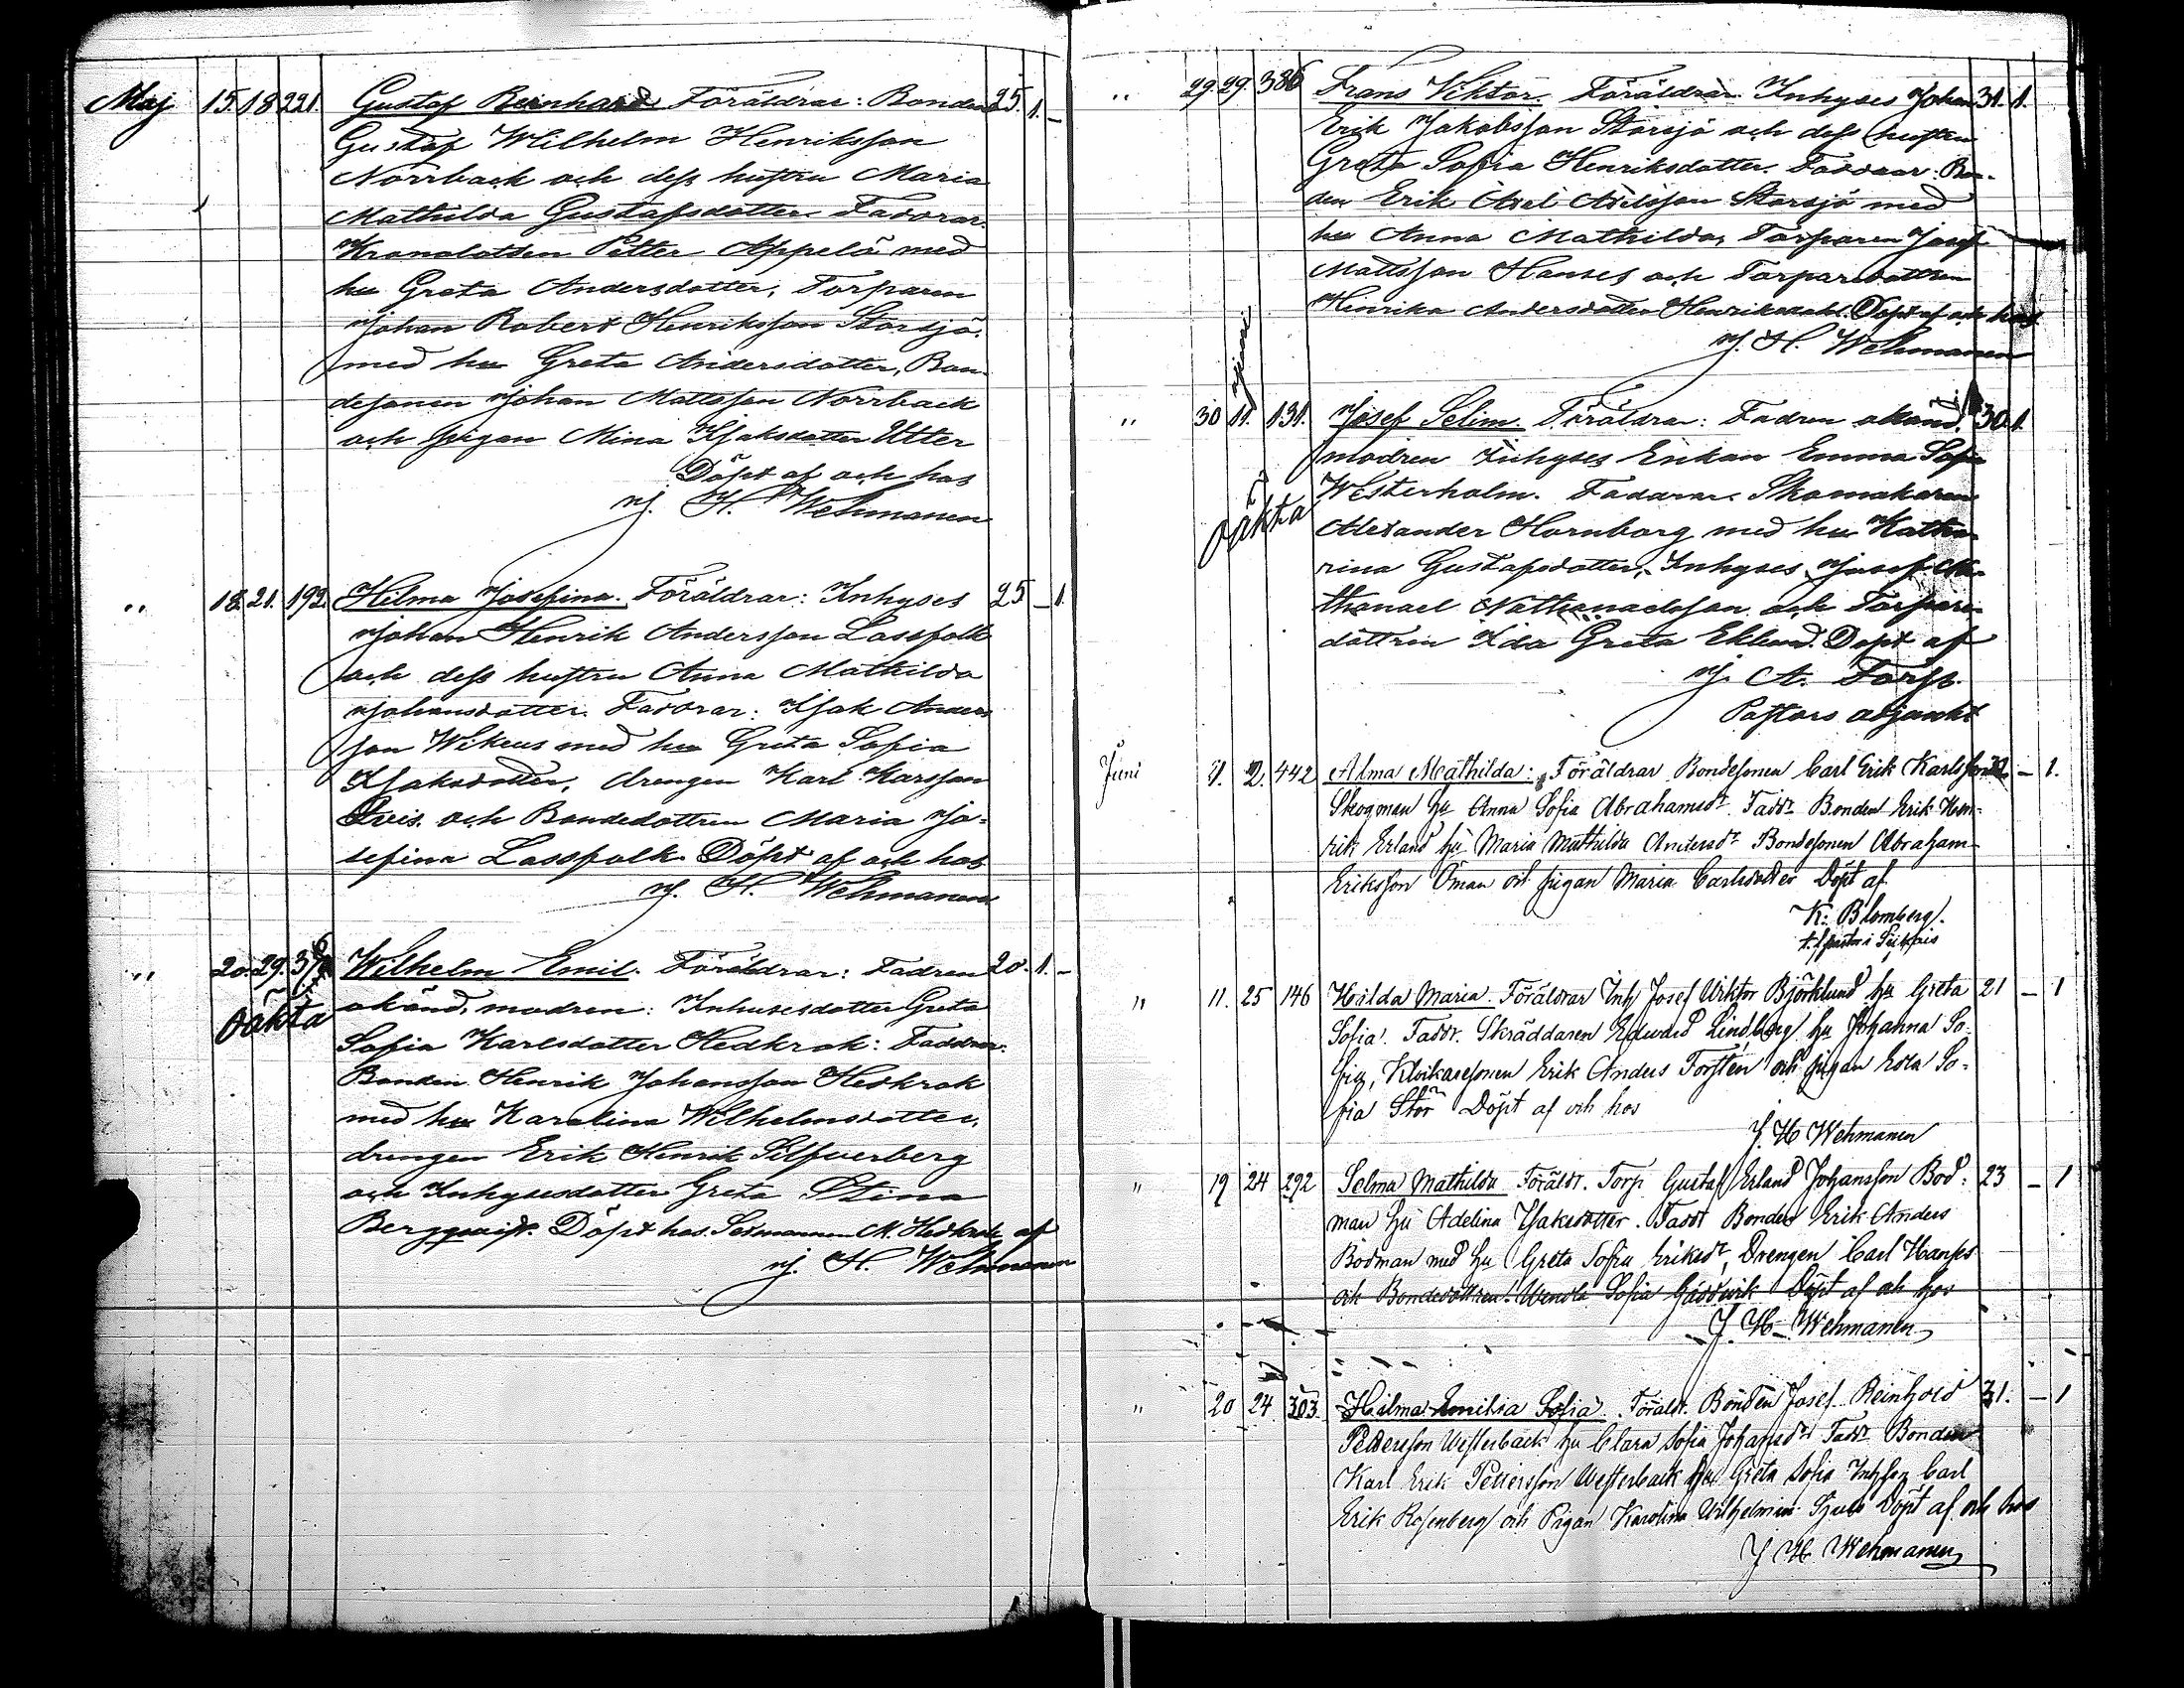 Maj 15. 18. 221. Gustaf Bernhard Föräldrar: Bonden 25. 1. –
Gustaf Wilhelm Henriksson
Norrback och dess hustru Maria
Mathilda Gustafsdotter Faddrar.
Petter Appelö med
hu Greta Andersdotter, Torparen
Johan Robert Henriksson Storsjö.
med hu Greta Andersdotter, Bon-
desonen Johan Mattsson Norrback
och pigan Mina Isaksdotter Utter
Döpt af och hos
J. H. Wehmanen
" 18. 21. 192. Hilma Josefina. Föräldrar: Inhyses 25 – 1.
Johan Henrik Andersson Lassfolk
och dess hustru Anna Mathilda
Johansdotter. Faddrar: Isak Anders
son Wikeus med hu Greta Sofia
Isaksdotter, drengen Karl Karsson
och Bondedottren Maria Jo-
sefina Lassfolk. Döpt af och hos
J. H. Wehmanen
" 20. 29. Wilhelm Emil. Föräldrar: Fadren 20. 1. –
oäkta okänd, modren: Inhysesdotter Greta
Sofia Karlsdotter Hedkrok: Faddrar:
Bonden Henrik Johansson Hedkrok
med hu Karolina Wilhelmsdotter,
drengen Erik Henrik Silfverberg
och Inhysesdotter Greta Stina
Bergqvist. Döpt hos M. Hedkrok af
J. H. Wehmanen
" 29. 29. 386 Frans Viktor. Föräldrar Inhyses Johan 31. 1.
Erik Jakobsson Storsjö och dess hustru
Greta Sofia Henriksdotter. Faddrar: Bon-
den Erik Axel Axelsson Storsjö med
hu Anna Mathilda, Torparen Josef
Mattsson Hanses och Torparedottren
Hinrika Andersdotter Döpt af och hos
J. H. Wehmanen
" 30 Juni 11. 131. Josef Selim. Föräldrar: Fadren okänd, 30. 1.
modren Inhyses Enkan Emma Sofia
oäkta Westerholm. Faddrar: Skomakaren
Alexander Hornborg med hu Katha-
rina Gustafsdotter, Inhyses Josef Na-
thanael Nathanaelsson och Torpare
dottren Ida Greta Eklund. Döpt af
J. A. Forss.
Pastors adjunkt
Juni 1. 2. 442 Alma Mathilda: Föräldrar Bondesonen Carl Erik Karlsson – 1.
Skogman hu Anna Sofia Abrahamsdr. Faddr Bonden Erik Hen-
rik Erland hu Maria Mathilda Andersdr Bondesonen Abraham
Eriksson Öman och pigan Maria Carlsdotter Döpt af
K: Blomberg.
t.f pastor i
" 11. 25 146 Hilda Maria. Föräldrar Inh Josef Wiktor Björklund hu Greta 21 – 1
Sofia. Faddr. Skräddaren Edward Lindberg hu Johanna So-
fia, Klockaresonen Erik Anders Forstén och pigan Lova So-
fia Stor Döpt af och hos
J. H. Wehmanen
" 19 24 292 Selma Mathilda Föräldr. Torp. Gustaf Erland Johansson Bod- 23 – 1
man hu Adelina Isaksdotter. Faddr Bonden Erik Anders
Bodman med hu Greta Sofia Eriksdr, Drengen Carl Hanses
och Bondedottren Wendla Sofia Gäddwik Döpt af och hos
J. H. Wehmanen
" 20 24 303. Hilma Emilia Sofia. Föräldr. Bonden Josef Reinhold 31. – 1
Pettersson Westerback hu Clara Sofia Johansdr Faddr Bonden
Karl Erik Pettersson Westerback hu Greta Sofia Inhyses Carl
Erik Rosenberg och Pigan Karolina Wilhelmina Döpt af och hos
J. H. Wehmanen